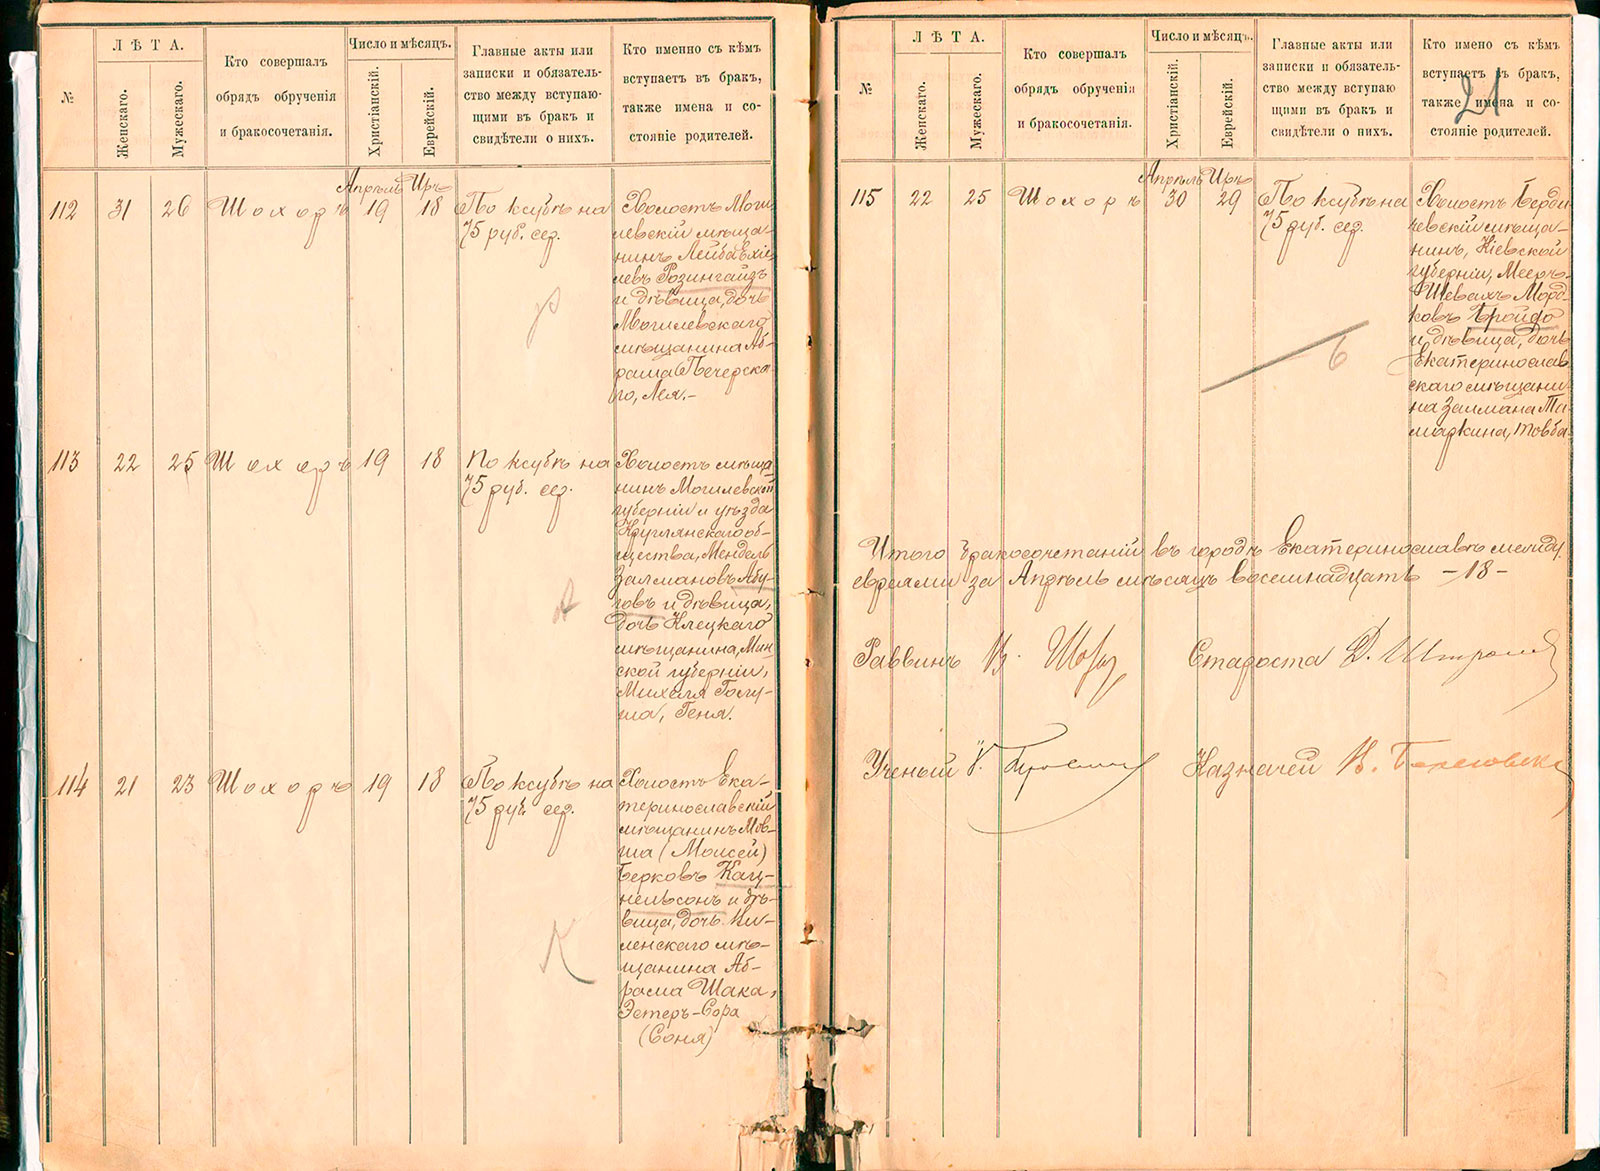 №
ЛѢТА.
Женскаго.
Мужескаго.
Кто совершалъ
обрядъ обрученія
и бракосочетанія.
Число и мѣсяцъ.
Христіанскій.
Еврейскій.
Главные акты или
записки и обязатель-
ство между вступаю-
щими въ бракъ и
свидѣтели о нихъ.
Кто именно съ кѣмъ
вступаетъ въ бракъ,
также имена и со-
стояніе родителей.
Апрѣль Иръ
112 31 26 Шохоръ 19 18 По ксубѣ на
75 руб. сер.
Холостъ Моги
левскій мѣща-
нинъ Лейба Ехіе
левъ Розингаузъ
и дѣвица, дочь
Могилевскаго
мѣщанина Аб-
рама Печерска-
го, Лея.-
113 22 25 Шохоръ 19 18 По ксубѣ на
75 руб. сер.
Холостъ мѣща
нинъ Могилевской
губерніи и уѣзда
Круглянскаго об-
щества, Мендель
Залмановъ Абу-
говъ и дѣвица,
дочь Клецкаго
мѣщанина, Мин
ской губерніи,
Михеля Голу-
ша, Геня.
114 21 23 Шохоръ 19 18 По ксубѣ на
75 руб. сер.
Холостъ Ека-
теринославскій
мѣщанинъ Мов-
ша (Моисей)
Берковъ Кац-
нельсонъ и дѣ-
вица, дочь Ви-
ленскаго мѣ-
щанина Аб-
рама Шака,
Эстеръ-Сора
(Соня)
№
ЛѢТА.
Женскаго.
Мужескаго.
Кто совершалъ
обрядъ обрученія
и бракосочетанія.
Число и мѣсяцъ.
Христіанскій.
Еврейскій.
Главные акты или
записки и обязатель-
ство между вступаю
щими въ бракъ и
свидѣтели о нихъ.
Кто имено съ кѣмъ
вступаетъ въ бракъ,
также имена и со-
стояніе родителей.
21
Апрѣль Иръ
115 22 25 Шохоръ 30 29 По ксубѣ на
75 руб. сер.
Холостъ Берди
чевскій мѣща-
нинъ, Кіевской
губерніи, Мееръ-
Шевахъ Морд-
ковъ Бройдо
и дѣвица, дочь
Екатеринослав
скаго мѣщани
на Залмана Та
маркина, Товба
Итого бракосочетаній въ городѣ Екатеринославѣ между
евреями за Апрѣль мѣсяцъ восемнадцать -18-
Раввинъ В. Шохоръ Староста Д.
Ученый Казначей В.